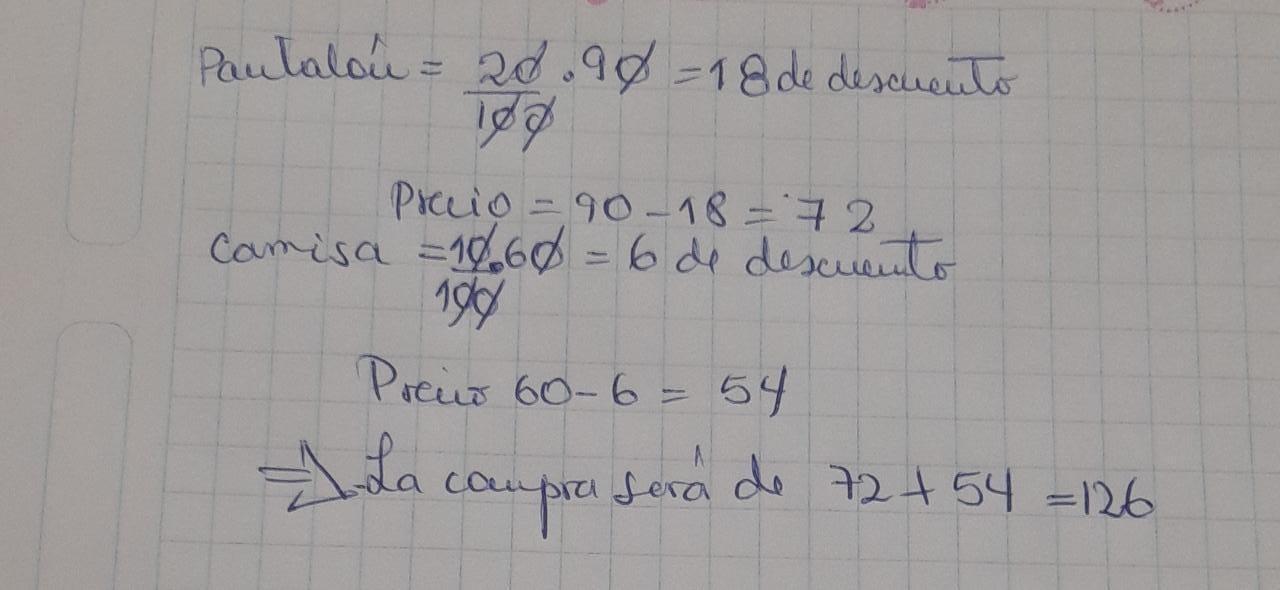 Pantalón = 20/100 . 90 = 18 de descuento
Precio = 90 - 18 = 72
Camisa = 10/100 . 60 = 6 de descuento
Precio 60 - 6 = 54
⇒ La compra será de 72 + 54 = 126